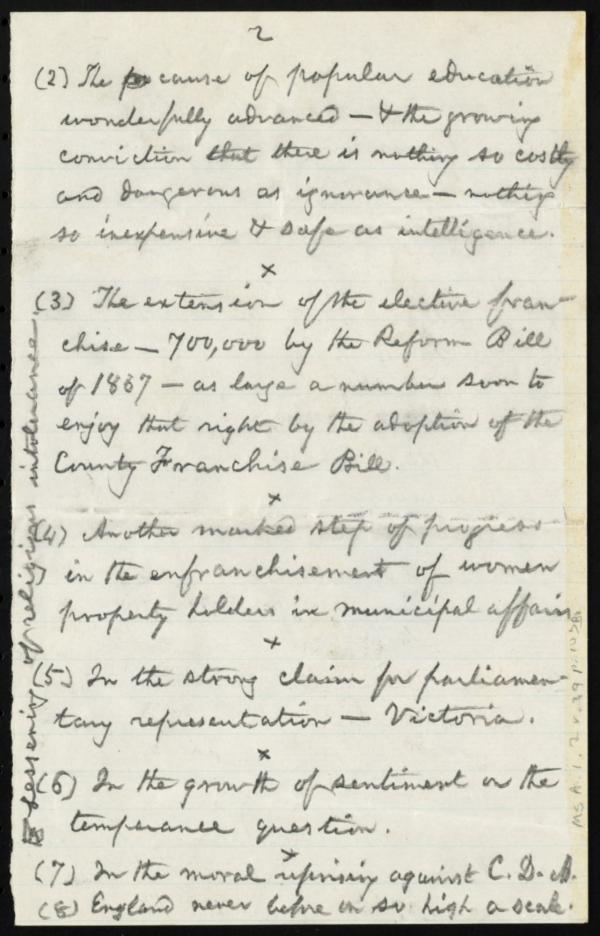 2
(2) The cause of popular education
wonderfully advanced — & the growing
conviction that there is nothing so costly
and dangerous as ignorance — nothing
so inexpensive & safe as intelligence.
x
(3) The extension of the elective fran-
chise — 700,000 by the Reform Bill
of 1867 — as large a number soon to
enjoy that right by the adoption of the
County Franchise Bill.
x
(4) Another marked step of progress
in the enfranchisement of women
property holders in municipal affairs
x
(5) In the strong claim for parliamen-
tary representation — Victoria.
x
(6) In the growth of sentiment on the
temperance question.
x
(7) In the moral uprising against C. D. A.
(8) England never before on so high a scale.
Lessening of religious intolerance.
MS A. 1. 2 v. 39 p. 103B